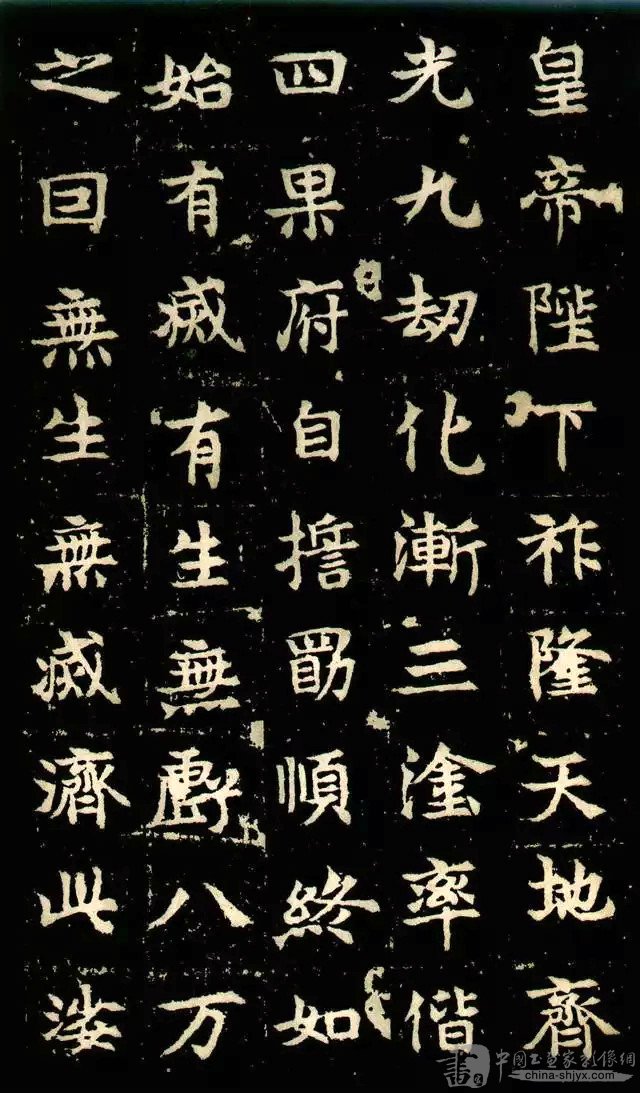 皇帝陛下祚隆天地齊
光九劫化漸三塗率偕
四果府自勗順終如
始有烕有生無虧八万
之曰無生無烕濟此
中國書畫家影像網
china-shjyx.com